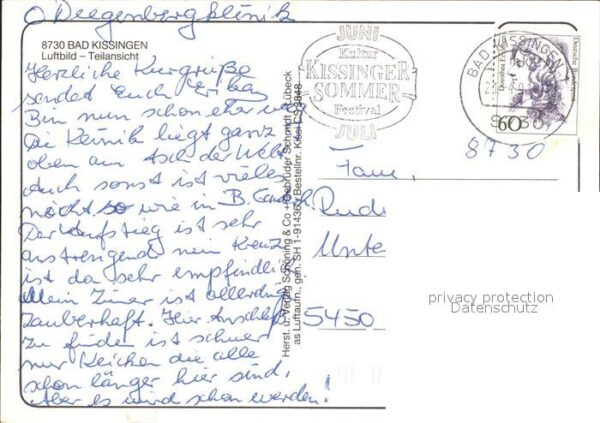 O Deegenbergklinik
8730 BAD KISSINGEN
Luftbild – Teilansicht
Herzliche Kurgrüße
sendet Euch
Bin nun schon eher
Die Klinik liegt ganz
oben am Asch der Welt
Auch sonst ist vieles
nicht so wie in B.
Der Aufstieg ist sehr
anstrengend mein Kreuz
ist da sehr empfindlich
Mein Zimer ist allerdings
zauberhaft. Hier Anschluß
zu finden ist schwer
nur Kleichen die alle
schon länger hier sind,
Aber es wird schon werden!
Herst. u. Verlag Schöning & Co + Gebrüder Schmidt, Lübeck
as Luftaufn., gen. SH 1-914363 Bestellnr. Kissi LS 3848
JUNI
Kultur
KISSINGER
SOMMER
Festival
JULI
BAD KISSINGEN 1
8730
Deutsche Bundespost
60
8730
Fam.
Rud
Unte
5450
privacy protection
Datenschutz